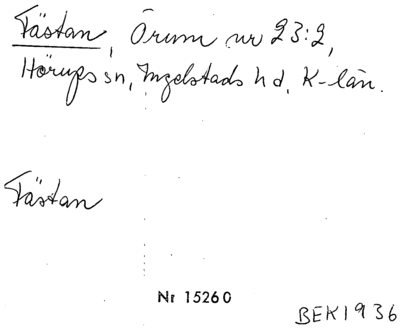 Fästan, Örum nr 23:2,
Hörups sn, Ingelstads hd, K-län.
Fästan
Nr 15260
BEK1936